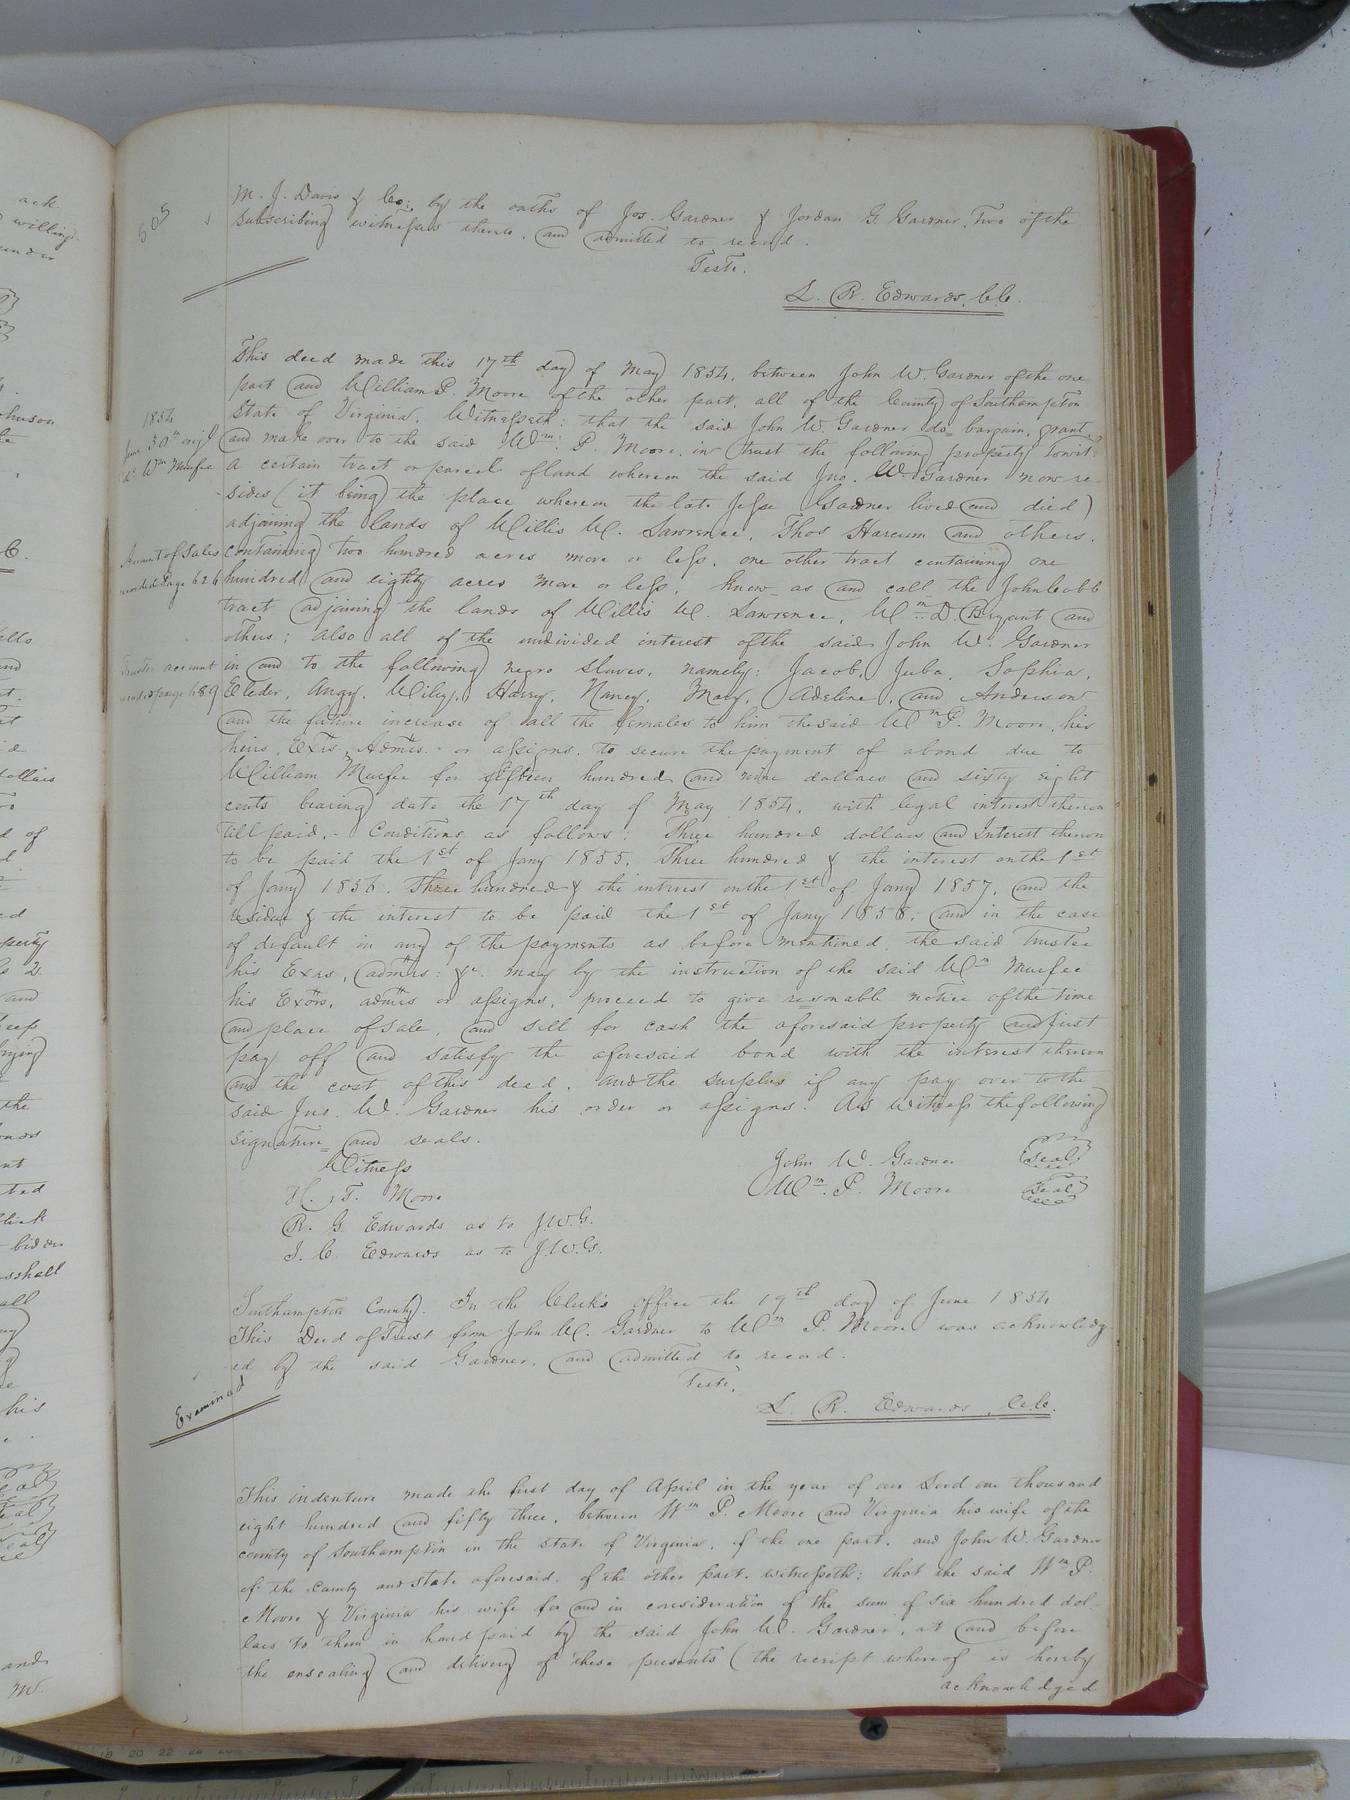 505
M. J. Davis & Co: by the oaths of Jos. Gardner & Jordan G. Gardner, Two of the
subscribing witnesses thereto, and admitted to record.
Teste.
L. R. Edwards, C.C.
This deed made this 17th day of May 1854, between John W. Gardner of the one
part and William P. Moore of the other part, all of the County of Southampton
State of Virginia, Witnesseth: that the said John W. Gardner do bargain, grant
and make over to the said Wm. P. Moore, in trust the following property Towit:
a certain tract or parcel of land whereon the said Jno. W. Gardner now re-
sides (it being the place whereon the late Jesse Gardner lived and died)
adjoining the lands of Willis W. Lawrence, Thos Harcum and others,
containing two hundred acres more or less, one other tract containing one
hundred and eighty acres more or less, know as and call the John Cobb
tract adjoining the lands of Willis W. Lawrence, Wm. D. Bryant and
others; also all of the undivided interest of the said John W. Gardner
in and to the following negro slaves, namely: Jacob, Juba, Sophia,
Eleder, Angy, Wiley, Harry, Nancy, Mary, Adeline, and Anderson
and the future increase of all the females to him the said Wm P. Moore, his
heirs, Exrs. Admrs. or assigns, to secure the payment of a bond due to
William Murfee for fifteen hundred and nine dollars and sixty eight
cents bearing date the 17th day of May 1854, with legal interest thereon
till paid,- Conditions as follows: Three hundred dollars and Interest thereon
to be paid the 1st of Jany 1855, Three hundred & the interest on the 1st
of Jany 1856. Three hundred & the interest on the 1st of Jany 1857, and the
residue & the interest to be paid the 1st of Jany 1858; and in the case
of default in any of the payments as before mentioned, the said Trustee
his Exrs, admrs: &c. may by the instruction of the said Wm Murfee
his Exors, admrs or assigns, proceed to give resonable notice of the time
and place of sale, and sell for cash the aforesaid property and first
pay off and satisfy the aforesaid bond with the interest thereon
and the cost of this deed, and the surplus if any pay over to the
said Jno. W. Gardner his order or assigns. As witness the following
signature and seals.
Witness
John W. Gardner Seal
H. T. Moore
Wm. P. Moore Seal
R. G. Edwards as to J.W.G.
J. C. Edwards as to J.W.G.
1854
June 30th origl
Wm Murfee
Account of Sales
recorded Page 626
Trustees account
page 689
Southampton County. In the Clerk's office the 19th day of June 1854
This Deed of Trust from John W. Gardner to Wm P. Moore was acknowledg
-ed by the said Gardner, and admitted to record.
Teste,
L. R. Edwards, C.C.
Examined
This indenture made the first day of April in the year of our Lord one thousand
eight hundred and fifty three, between Wm P. Moore and Virginia his wife of the
county of Southampton in the state of Virginia, of the one part, and John W. Gardner
of the county and state aforesaid, of the other part, witnesseth: that the said Wm P.
Moore & Virginia his wife for and in consideration of the sum of six hundred dol-
lars to them in hand paid by the said John W. Gardner, at and before
the ensealing and delivery of these presents (the receipt whereof is hereby
acknowledged